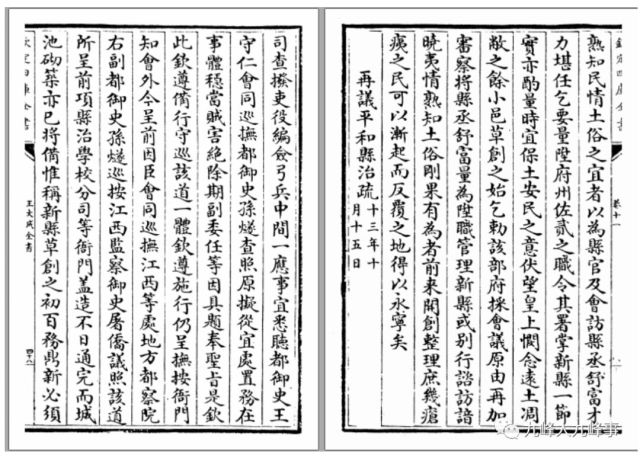 欽定四庫全書
卷十一
熟知民情土俗之宜者以為縣官及會訪縣丞舒富才
力堪任乞要量陞府州佐貳之職令其署掌新縣一節
實亦酌量時宜保土安民之意伏望皇上憫愈遠土凋
敝之餘小邑草創之始乞勅該部府採會議原由再加
審察將縣丞舒富量為陞職管理新縣或別行諮訪諳
曉夷情熟知土俗剛果有為者前來開創整理庶幾瘡
痍之民可以漸起而反覆之地得以永寧矣
再議平和縣治疏 十三年十
月十五日
司查撥吏役編僉弓兵中間一應事宜悉聽都御史王
守仁會同巡撫都御史孫燧查照原擬從宜處置務在
事體穩當賊害絕除期副委任等因具題奉聖旨是欽
此欽遵備行守巡該道一體欽遵施行仍呈撫按衙門
知會外今呈前因臣會同巡撫江西等處地方都察院
右副都御史孫燧巡按江西監察御史屠僑議照該道
所呈前項縣治學校分司等衙門蓋造不日通完而城
池砌築亦已將備惟稱新縣草創之初百務鼎新必須
欽定四庫全書
王文成全書
九峰人九峰事